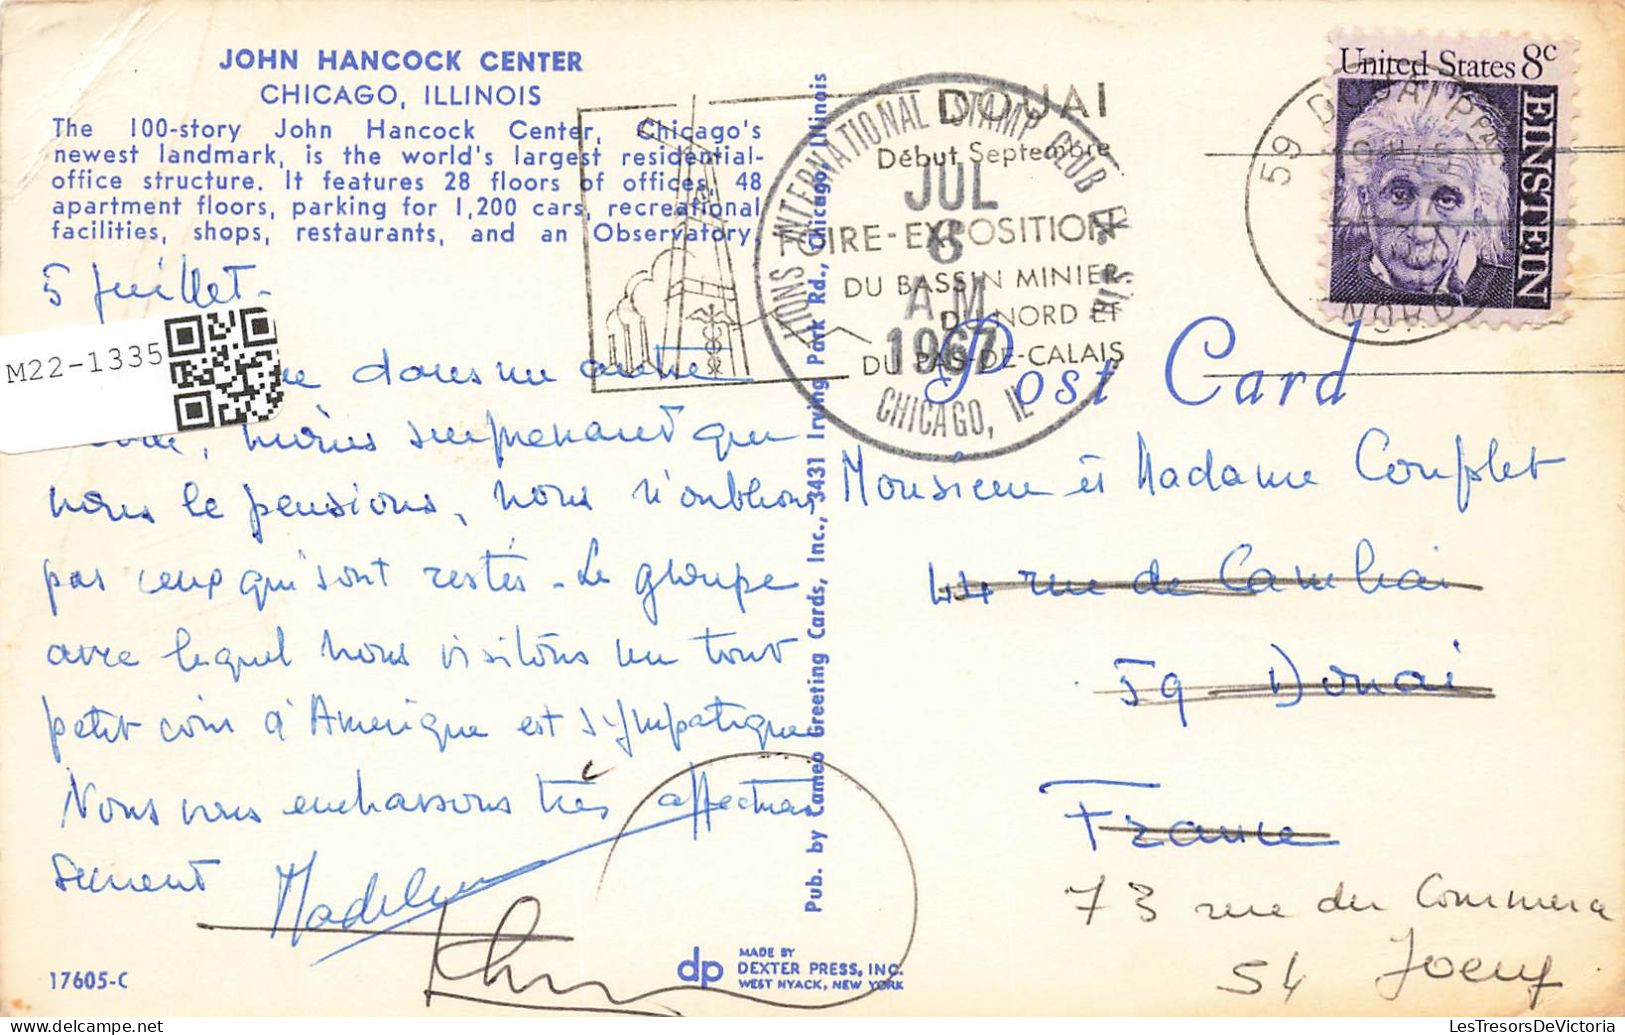 JOHN HANCOCK CENTER
CHICAGO, ILLINOIS
The 100-story John Hancock Center, Chicago's
newest landmark, is the world's largest residential-
office structure. It features 28 floors of offices, 48
apartment floors, parking for 1,200 cars, recreational
facilities, shops, restaurants, and an Observatory.
5 Juillet -
M22-1335
dans un autre
moins surprenant que
nous le pensions, nous n'oublions
pas ceux qui sont restés - Le groupe
avec lequel nous visitons un tout
petit coin d'Amérique est sympatique
Nous vous embrassons très affectueu
sement
Madeleine
17605-C
Pub. by Cameo Greeting Cards, Inc., 3431 Irving Park Rd., Chicago, Illinois
dp
MADE BY
DEXTER PRESS, INC.
WEST NYACK, NEW YORK
DOUAI
Début Septembre
FOIRE-EXPOSITION
DU BASSIN MINIER
DU NORD ET
DU PAS-DE-CALAIS
LIONS INTERNATIONAL STAMP CLUB
JUL
6
A.M
1967
CHICAGO, IL
59 DOUAI PPAL
NORD
United States 8c
EINSTEIN
Post Card
Monsieur et Madame Couplet
44 rue de Cambrai
59 Douai
France
73 rue du Commerce
54 Joeuf
LesTresorsDeVictoria
www.delcampe.net